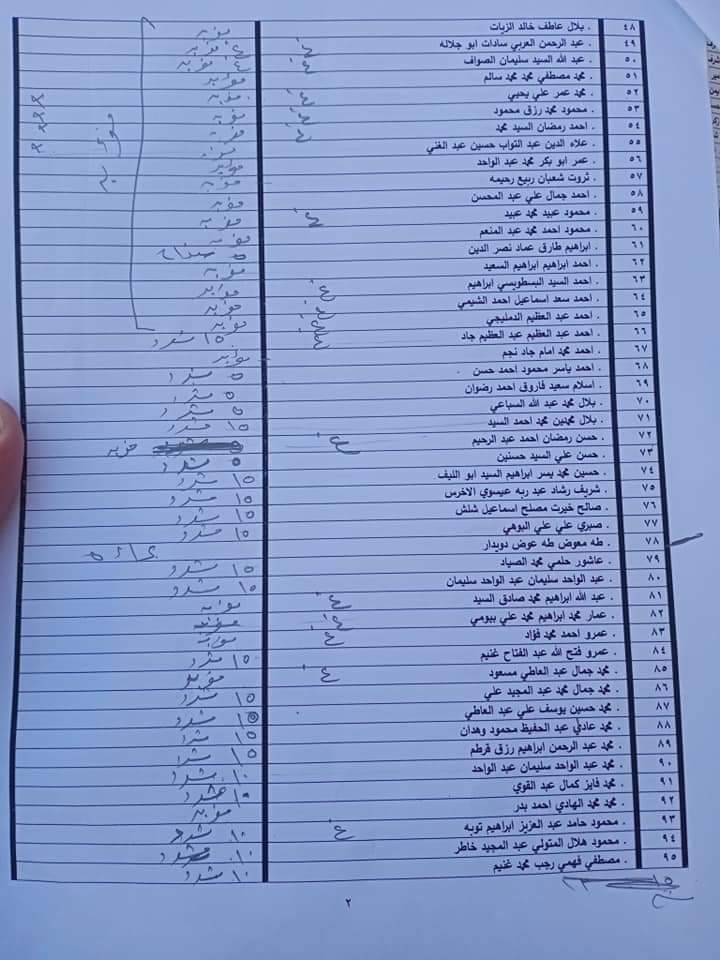 ٤٨ . بلال عاطف خالد الزيات مؤبد
٤٩ . عبد الرحمن العربي سادات ابو جلاله غ مؤبد
٥٠ . عبد الله السيد سليمان الصواف غ مؤبد
٥١ . محمد مصطفي محمد محمد سالم مؤبد
٥٢ . محمد عمر علي يحيي غ مؤبد
٥٣ . محمود محمد رزق محمود غ مؤبد
٥٤ . احمد رمضان السيد محمد غ مؤبد
٥٥ . علاء الدين عبد التواب حسين عبد الغني مؤبد
٥٦ . عمر ابو بكر محمد عبد الواحد مؤبد
٥٧ . ثروت شعبان ربيع رحيمه مؤبد
٥٨ . احمد جمال علي عبد المحسن مؤبد
٥٩ . محمود عبيد محمد عبيد غ مؤبد
٦٠ . محمود احمد محمد عبد المنعم مؤبد
٦١ . ابراهيم طارق عماد نصر الدين ٥
٦٢ . احمد ابراهيم ابراهيم السعيد مؤبد
٦٣ . احمد السيد البسطويسي ابراهيم غ مؤبد
٦٤ . احمد سعد اسماعيل احمد الشيمي غ مؤبد
٦٥ . احمد عبد العظيم الدمليجي غ مؤبد
٦٦ . احمد عبد العظيم عبد العظيم جاد ١٥ مشدد
٦٧ . احمد محمد امام جاد نجم مؤبد
٦٨ . احمد ياسر محمود احمد حسن ٥ مشدد
٦٩ . اسلام سعيد فاروق احمد رضوان ٥ مشدد
٧٠ . بلال محمد عبد الله السباعي ٥ مشدد
٧١ . بلال محمدين محمد احمد السيد ١٥ مشدد
٧٢ . حسن رمضان احمد عبد الرحيم غ مؤبد
٧٣ . حسن علي السيد حسنين ٥ مشدد
٧٤ . حسين محمد يسر ابراهيم السيد ابو الليف ١٥ مشدد
٧٥ . شريف رشاد عبد ربه عيسوي الاخرس ١٥ مشدد
٧٦ . صالح خيرت مصلح اسماعيل شلش ١٥ مشدد
٧٧ . صبري علي علي البوهي ١٥ مشدد
٧٨ . طه معوض طه عوض دويدار
٧٩ . عاشور حلمي محمد الصياد ١٥ مشدد
٨٠ . عبد الواحد سليمان عبد الواحد سليمان ١٥ مشدد
٨١ . عبد الله ابراهيم محمد صادق السيد غ مؤبد
٨٢ . عمار محمد ابراهيم محمد علي بيومي غ مؤبد
٨٣ . عمرو احمد محمد فؤاد غ مؤبد
٨٤ . عمرو فتح الله عبد الفتاح غنيم ١٥ مشدد
٨٥ . محمد جمال عبد العاطي مسعود غ مؤبد
٨٦ . محمد جمال محمد عبد المجيد علي ١٥ مشدد
٨٧ . محمد حسين يوسف علي عبد العاطي ١٥ مشدد
٨٨ . محمد عادل عبد الحفيظ محمود وهدان ١٥ مشدد
٨٩ . محمد عبد الرحمن ابراهيم رزق قرطم ١٥ مشدد
٩٠ . محمد عبد الواحد سليمان عبد الواحد ١٠ مشدد
٩١ . محمد فايز كمال عبد القوي ١٠ مشدد
٩٢ . محمد محمد الهادي احمد بدر مؤبد
٩٣ . محمود حامد عبد العزيز ابراهيم توبه غ ١٠ مشدد
٩٤ . محمود هلال المتولي عبد المجيد خاطر ١٠ مشدد
٩٥ . مصطفي فهمي رجب محمد غنيم ١٠ مشدد
٢